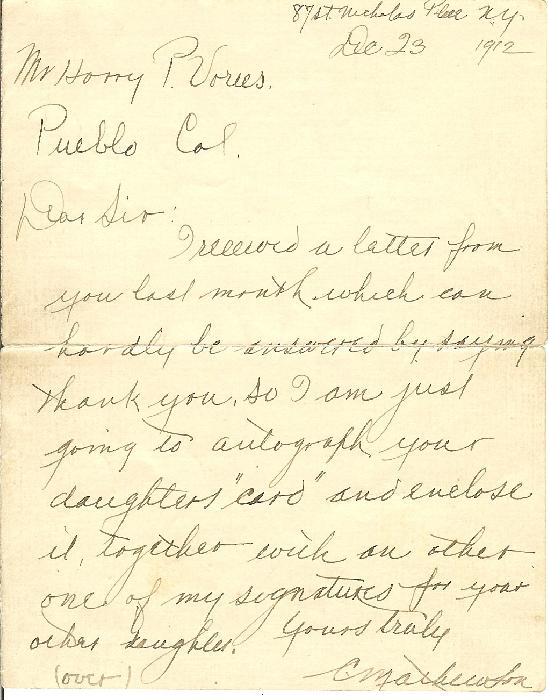 87 St Nicholas Place N.Y.
Dec 23 1912
Mr Harry P. Vories.
Pueblo Col.
Dear Sir:
I received a letter from
you last month which can
hardly be answered by saying
thank you, so I am just
going to autograph your
daughters "card" and enclose
it, together with an other
one of my signatures for your
other daughter. Yours truly
(over) C Mathewson